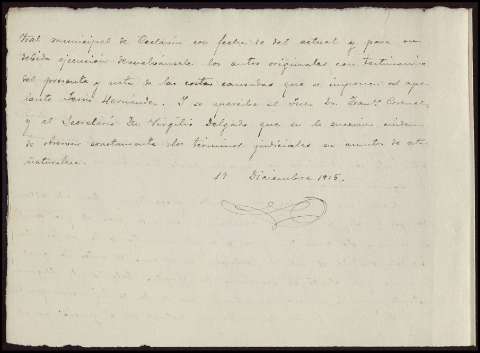 nal municipal de Ceclavin con fecha 10 del actual y para su
debida ejecución devuelvansele los autos originales con testimonio
del presente y nota de las costas causadas que se imponen al ape-
lante Tomás Hernández. Y se apercibe al Juez Dn. Franco.
y al Secretario Dn. Virgilio Delgado que en lo sucesivo cuiden
de observar exactamente los términos judiciales en asuntos de esta
naturaleza.
17 Diciembre 1915.